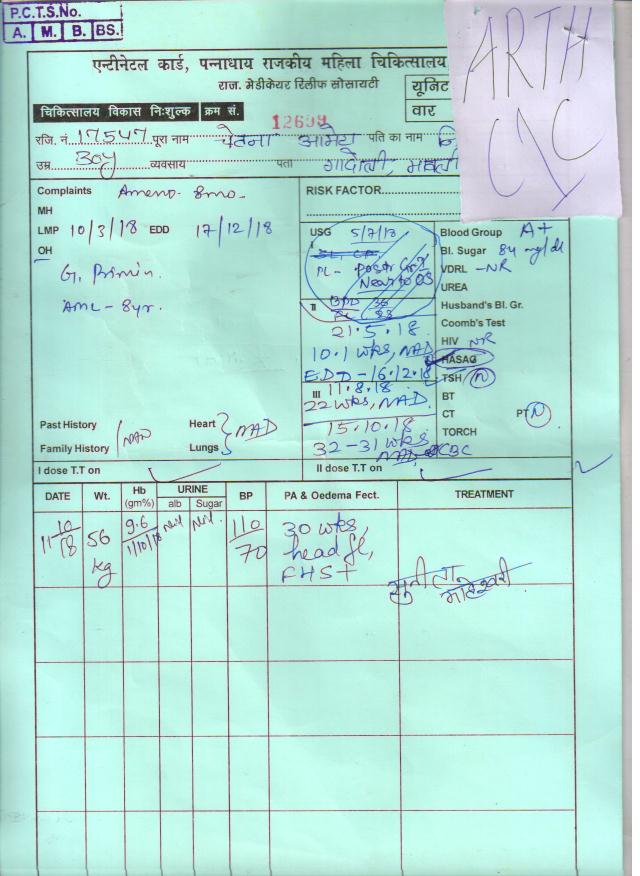 P.C.T.S.No.
A. M. B. BS.
ARTH
एन्टीनेटल कार्ड, पन्नाधाय राजकीय महिला चिकित्सालय
राज. मेडीकेयर रिलीफ सोसायटी
यूनिट
वार
चिकित्सालय विकास निःशुल्क क्रम सं.
12699
रजि. नं. 17547 पूरा नाम चेतना आमेटा पति का नाम
उम्र व्यवसाय पता
Complaints Ameno- 8mo-
MH
LMP 10/3/18 EDD 17/12/18
OH
G, Primi
AML - 8yr.
RISK FACTOR
USG 5/7/18
I
PL- Post Gr I
Near to OS
II BPD 36
21.5.18
10.1 wks, NAD
EDD-16.12.18
III 11.8.18
22 wks, NAD.
15.10.18
32-31 wks
NAD
Blood Group A+
Bl. Sugar 84 mg/dl
VDRL - NR
UREA
Husband's Bl. Gr.
Coomb's Test
HIV NR
HASAG
TSH N
BT
CT PT N
TORCH
CBC
Past History NAD
Family History
Heart NAD
Lungs
I dose T.T on
II dose T.T on
DATE Wt. Hb (gm%) URINE alb Sugar BP PA & Oedema Fect. TREATMENT
11/10/18 56 kg 9.6 1/10/18 Nil Nil 110/70 30 wks,
head fl,
FHS +
सुनीता
माहेश्वरी